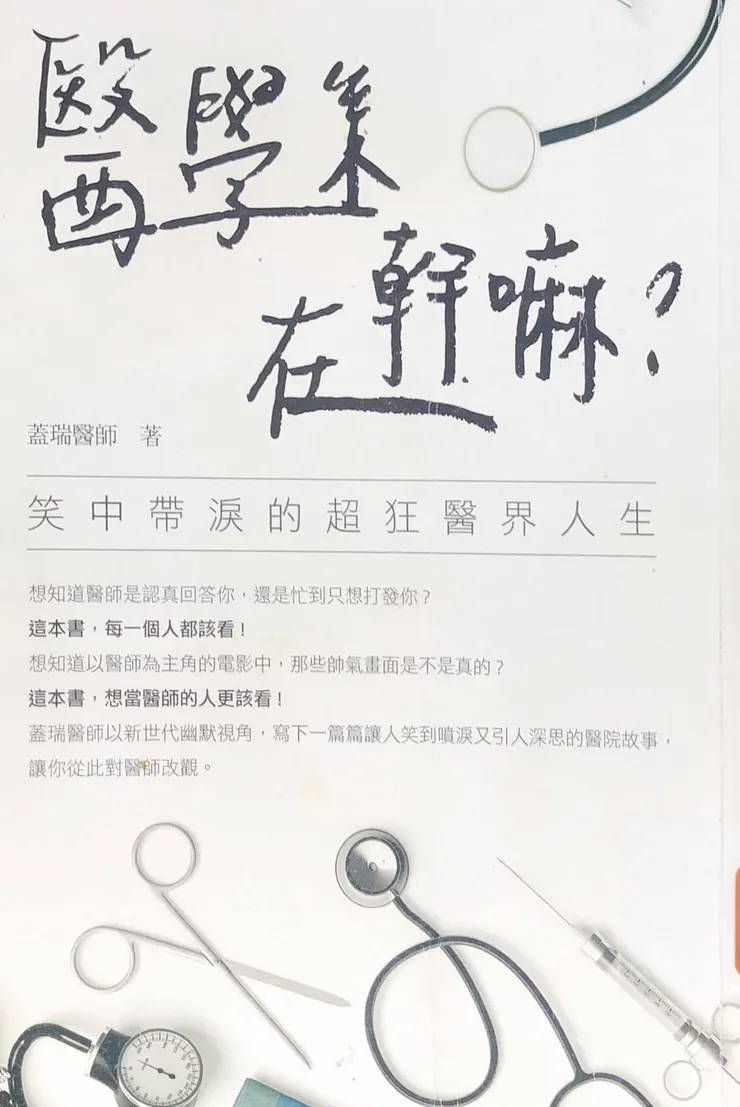 醫學系
在幹嘛?
蓋瑞醫師 著
笑中帶淚的超狂醫界人生
想知道醫師是認真回答你，還是忙到只想打發你？
這本書，每一個人都該看！
想知道以醫師為主角的電影中，那些帥氣畫面是不是真的？
這本書，想當醫師的人更該看！
蓋瑞醫師以新世代幽默視角，寫下一篇篇讓人笑到噴淚又引人深思的醫院故事，
讓你從此對醫師改觀。